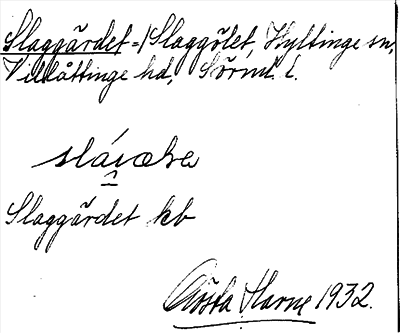 Slaggärdet =/Slaggölet, Hyltinge sn,
Villåttinge hd, Sörml. l.
Slaggärdet kb
Gösta Harne 1932.